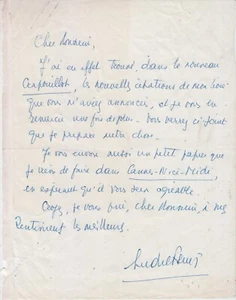 Cher Monsieur,
J'ai en effet trouvé, dans le nouveau
Crapouillot, les nouvelles citations de mon livre
que vous m'aviez annoncées, et je vous en
remercie une fois de plus. Vous verrez ci-joint
que je prépare autre chose.
Je vous envoie aussi un petit papier que
je viens de faire dans Cannes-Nice-Midi,
en espérant qu'il vous sera agréable.
Croyez, je vous prie, cher Monsieur, à mes
sentiments les meilleurs.